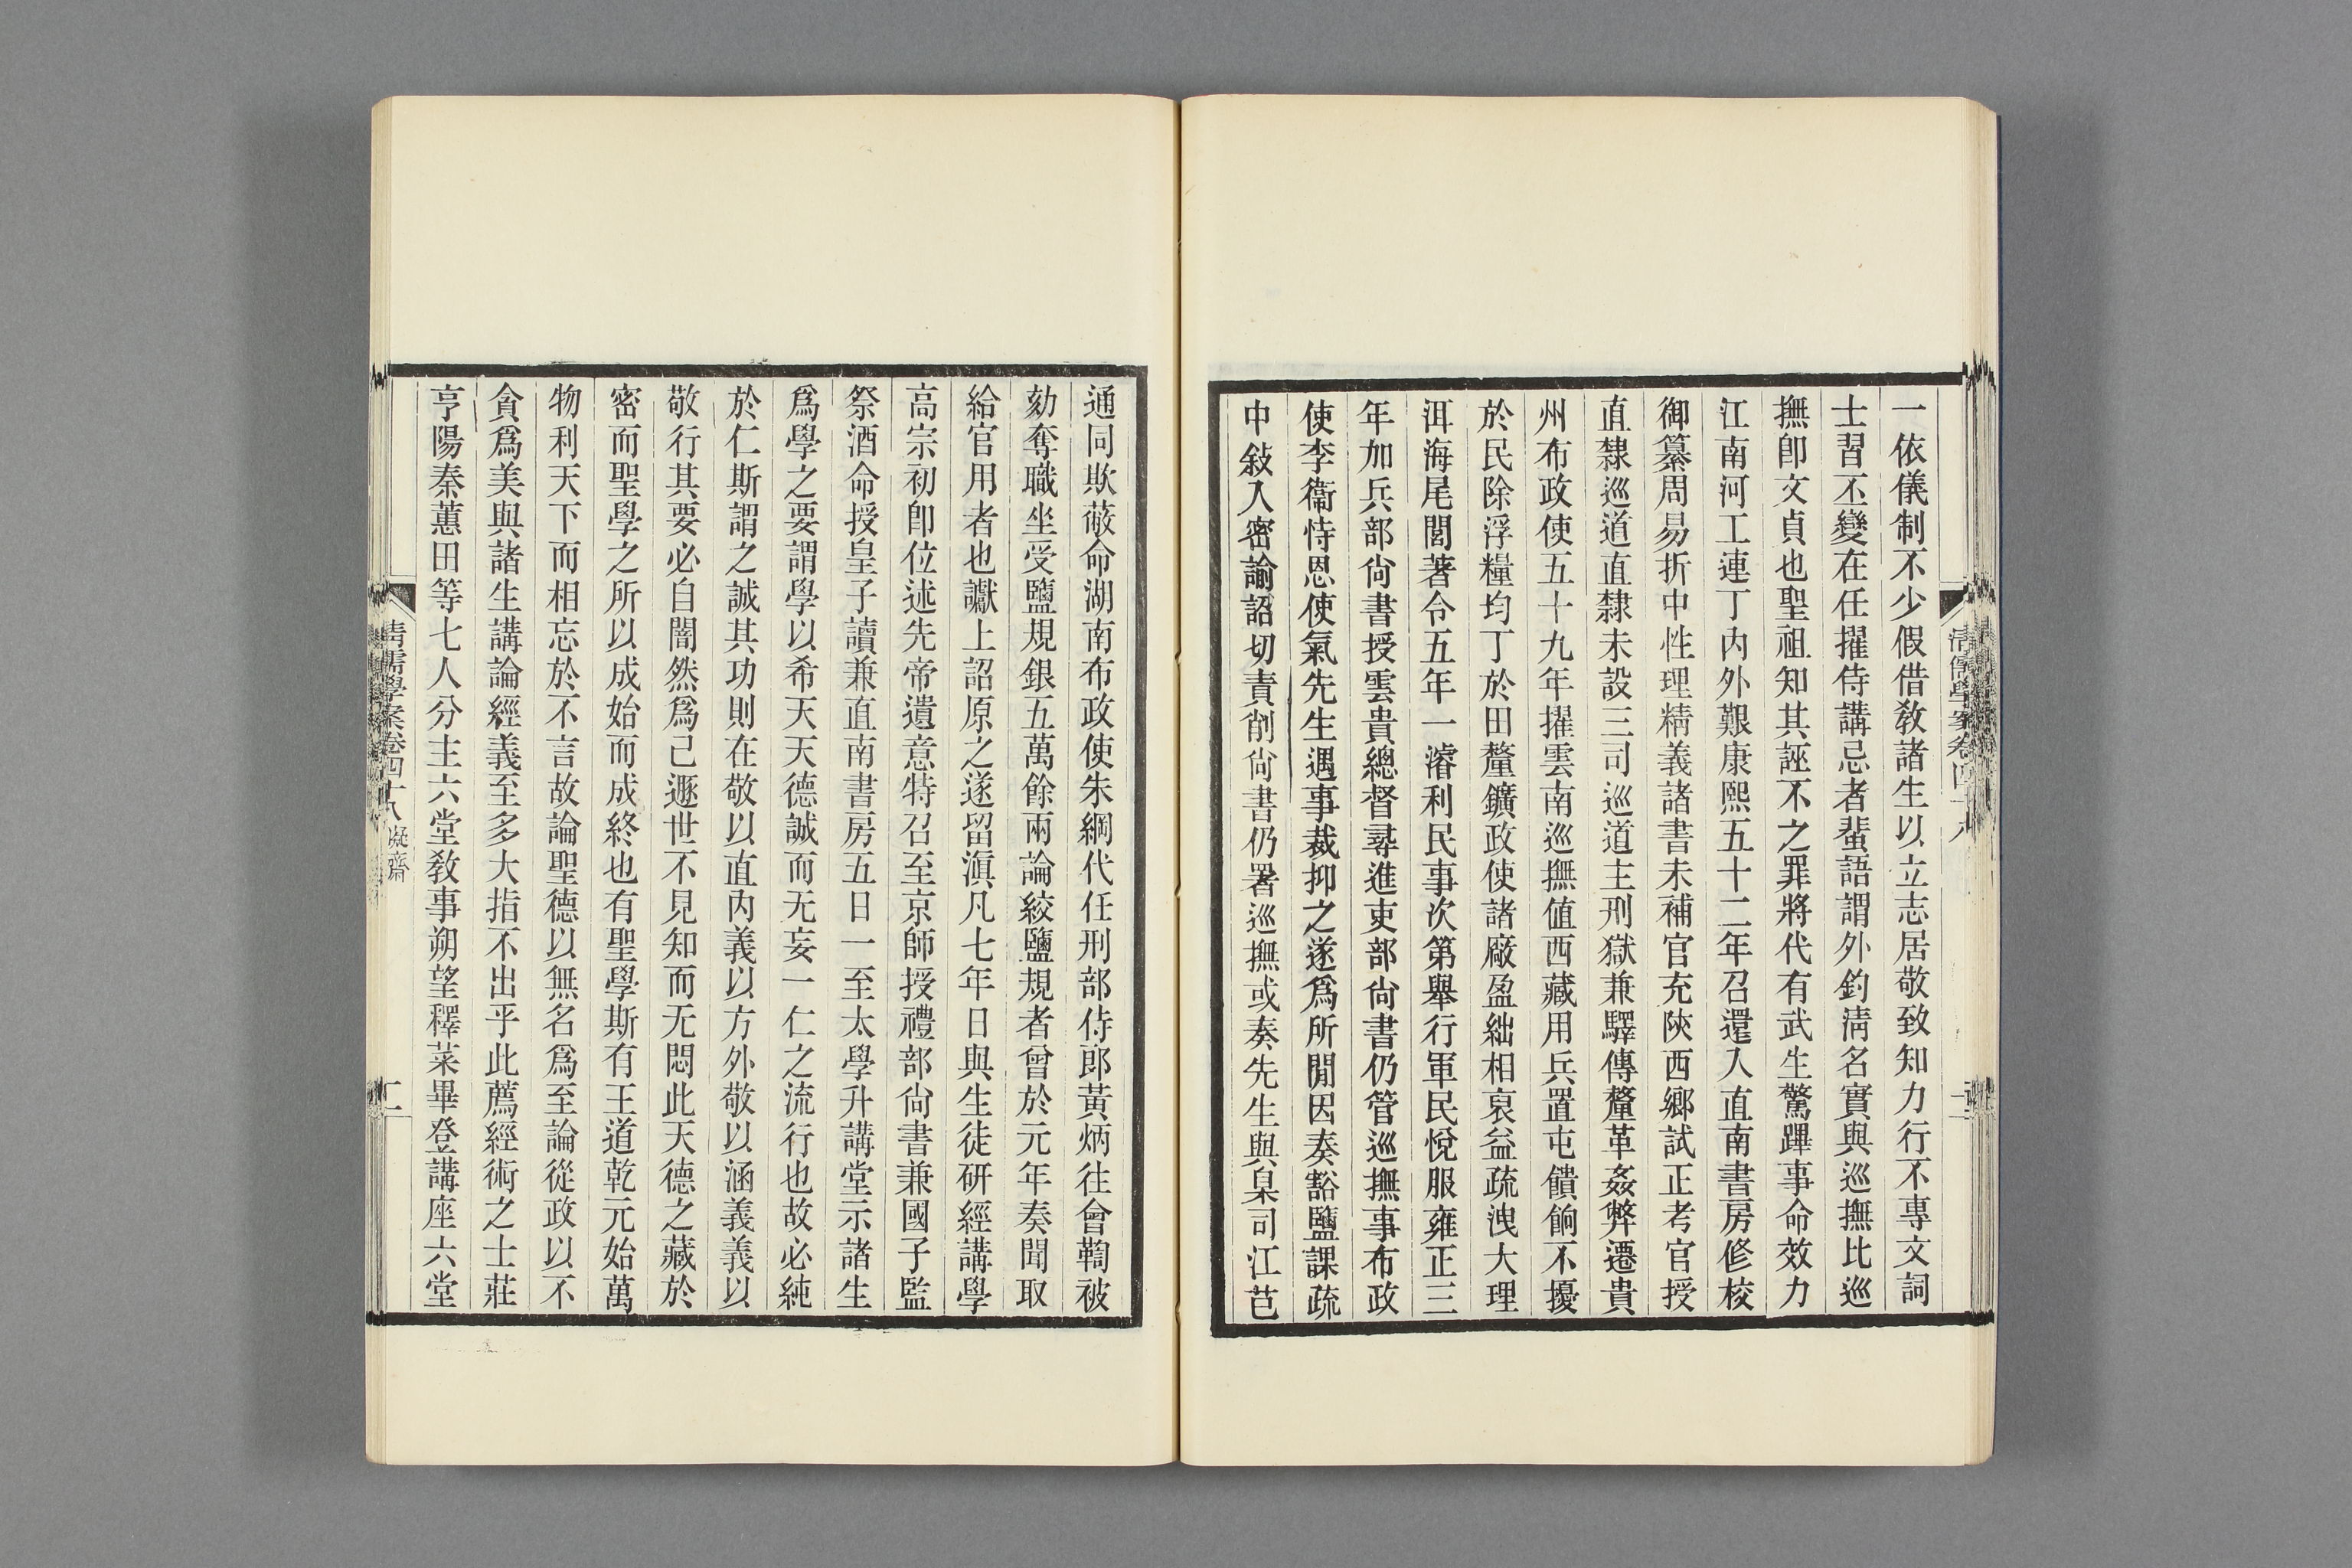 一依儀制不少假借敎諸生以立志居敬致知力行不專文詞
士習丕變在任擢侍講忌者蜚語謂外釣淸名實與巡撫比巡
撫卽文貞也聖祖知其誣不之罪將代有武生驚蹕事命效力
江南河工連丁內外艱康熙五十二年召還入直南書房修校
御纂周易折中性理精義諸書未補官充陝西鄉試正考官授
直隸巡道直隸未設三司巡道主刑獄兼驛傳釐革姦弊遷貴
州布政使五十九年擢雲南巡撫値西藏用兵置屯饋餉不擾
於民除浮糧均丁於田釐鑛政使諸廠盈絀相裒益疏洩大理
洱海尾閭著令五年一濬利民事次第舉行軍民悅服雍正三
年加兵部尙書授雲貴總督尋進吏部尙書仍管巡撫事布政
使李衞恃恩使氣先生遇事裁抑之遂爲所閒因奏豁鹽課疏
中敍入密諭詔切責削尙書仍署巡撫或奏先生與臬司江芑
淸儒學案卷四十八
通同欺蔽命湖南布政使朱綱代任刑部侍郎黃炳往會鞫被
劾奪職坐受鹽規銀五萬餘兩論絞鹽規者曾於元年奏聞取
給官用者也讞上詔原之遂留滇凡七年日與生徒硏經講學
高宗初卽位述先帝遺意特召至京師授禮部尙書兼國子監
祭酒命授皇子讀兼直南書房五日一至太學升講堂示諸生
爲學之要謂學以希天天德誠而无妄一仁之流行也故必純
於仁斯謂之誠其功則在敬以直內義以方外敬以涵義義以
敬行其要必自闇然爲己遯世不見知而无悶此天德之藏於
密而聖學之所以成始而成終也有聖學斯有王道乾元始萬
物利天下而相忘於不言故論聖德以無名爲至論從政以不
貪爲美與諸生講論經義至多大指不出乎此薦經術之士莊
亨陽秦蕙田等七人分主六堂敎事朔望釋菜畢登講座六堂
淸儒學案卷四十八 凝齋
二